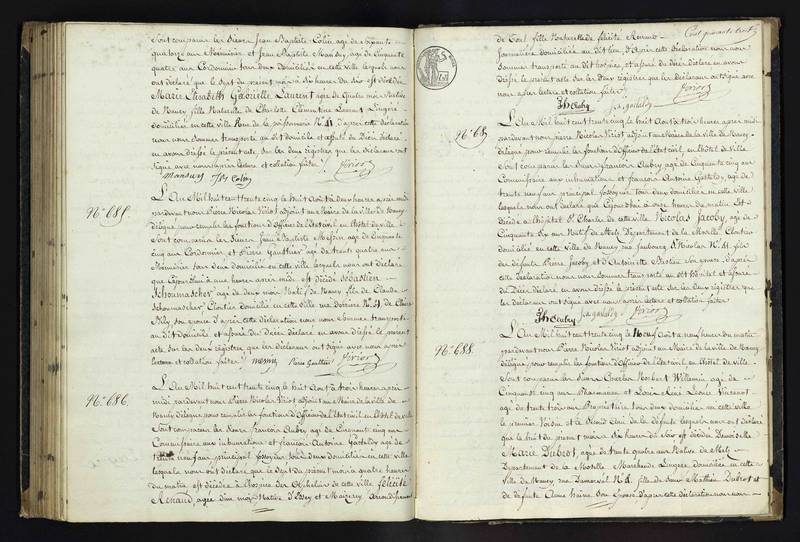 Sont comparus les Sieurs Jean Baptiste Colin, agé de soixante
quatorze ans Menuisier et Jean Baptiste Mansuy, agé de cinquante
quatre ans Cordonnier tous deux domiciliés en cette ville lesquels nous
ont déclaré que le sept du présent mois à dix heures du soir est décédée
Marie Elisabeth Gabrielle Laurent agée de quatre mois Native
de Nancy fille Naturelle de Charlotte Clémentine Laurent Lingère
domiciliée en cette ville Rue de la poissonnerie No. 41 d'après cette déclaration
nous nous sommes transporté au dit domicile et assuré du Décès déclaré
en avons dressé le présent acte sur les deux registres que les déclarans ont
signé avec nous après lecture et collation faites
Mansuy Colin
No. 685.
L'An Mil huit cent trente cinq le huit Août à deux heures après midi
pardevant nous Pierre Nicolas Viriot adjoint au Maire de la ville de Nancy
délégué pour remplir les fonctions d'Officier de l'Etat civil en l'hôtel de ville
Sont comparus les Sieurs Jean Baptiste Messin agé de cinquante
cinq ans Cordonnier et Pierre Gauthier agé de trente quatre ans
Menuisier tous deux domiciliés en cette ville lesquels nous ont déclaré
que cejourd'hui à une heure après midi est décédé Sébastien
Schoumascher agé de deux mois Natif de Nancy fils de Claude
Schoumascher Cloutier domicilié en cette ville rue derrière No. 31 et de
son épouse d'après cette déclaration nous nous sommes transporté
au dit domicile et assuré du Décès déclaré en avons dressé le présent
acte sur les deux registres que les déclarans ont signé avec nous après
lecture et collation faites Pierre Gauthier Viriot
No. 686.
L'An Mil huit cent trente cinq le huit Août à trois heures après
midi pardevant nous Pierre Nicolas Viriot adjoint au Maire de la ville de
Nancy délégué pour remplir les fonctions d'Officier de l'Etat civil en l'hôtel de ville
Sont comparus les Sieurs François Aubry agé de Cinquante cinq ans
Commissaire aux inhumations et françois Antoine Gastaldy agé de
trente neuf ans principal fossoyeur tous deux domiciliés en cette ville
lesquels nous ont déclaré que le sept du présent mois à quatre heures
du matin est décédée à l'hospice des Orphelins de cette ville félicité
Renaud, agée d'un mois Native d'Essey et Maizerais, arrondissement
de Toul fille Naturelle de félicité Renaud
Journalière domiciliée au dit lieu, D'après cette déclaration nous nous
sommes transporté au dit hospice, et assuré du décès déclaré en avons
dressé le présent acte sur les deux registres que les déclarans ont signé avec
nous après lecture et collation faites
Aubry Gastaldy Viriot
No. 687
L'An Mil huit cent trente cinq le huit Août à trois heures après midi
pardevant nous pierre Nicolas Viriot adjoint au Maire de la ville de Nancy
délégué pour remplir les fonctions d'Officier de l'Etat civil en l'hôtel de Ville
Sont comparus les Sieurs François Aubry agé de Cinquante cinq ans
Commissaire aux inhumations et françois Antoine Gastaldy, agé de
trente neuf ans principal fossoyeur tous deux domiciliés en cette ville
lesquels nous ont déclaré que Cejourd'hui à onze heures du matin Est
décédé à l'hôpital St. Charles de cette ville Nicolas Jacoby, agé de
Cinquante six ans Natif de Metz, Département de la Moselle, Cloutier
domicilié en cette Ville de Nancy rue faubourg St. Nicolas No. 41 fils
de défunts Pierre Jacoby et d'Antoinette Bastien son épouse, d'après
cette déclaration nous nous sommes transporté au dit Hôpital et assuré
du Décès déclaré en avons dressé le présent acte sur les deux registres que
les déclarans ont signé avec nous après lecture et collation faites
Aubry Gastaldy Viriot
No. 688.
L'An Mil huit cent trente cinq le Neuf Août à neuf heures du matin
pardevant nous Pierre Nicolas Viriot adjoint au Maire de la ville de Nancy
délégué pour remplir les fonctions d'Officier de l'Etat civil en l'hôtel de ville
Sont comparus les Sieurs Charles Norbert Willemin agé de
Cinquante cinq ans Pharmacien et Louis René Leonce Vincenot
agé de trente trois ans Propriétaire tous deux domiciliés en cette ville
le premier Voisin et le second Ami de la défunte lesquels nous ont déclaré
que le huit du présent mois à dix heures du Soir est décédée Demoiselle
Marie Dubrot, agée de trente quatre ans Native de Metz
Département de la Moselle Marchande Lingère domiciliée en cette
Ville de Nancy, rue Lamerval No. 1. fille de Sieur Mathieu Dubrot et
de défunte Anne hairs Son Epouse d'après cette déclaration nous nous